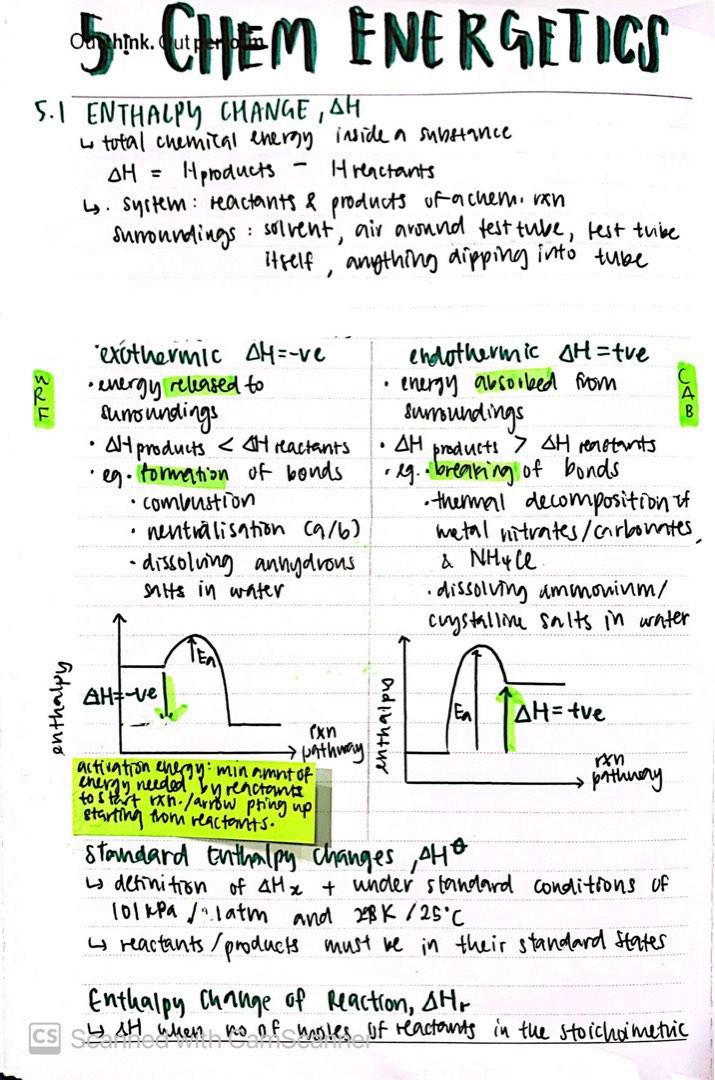 5. CHEM ENERGETICS
Outthink. Outperform.
5.1 ENTHALPY CHANGE, ΔH
↳ total chemical energy inside a substance
ΔH = Hproducts - Hreactants
↳. system: reactants & products of a chem. rxn
surroundings: solvent, air around test tube, test tube
itself, anything dipping into tube
exothermic ΔH=-ve
WRF
• energy released to
surroundings
• ΔH products < ΔH reactants
• eg. formation of bonds
• combustion
• neutralisation (a/b)
• dissolving anhydrous
salts in water
endothermic ΔH=+ve
CAB
• energy absorbed from
surroundings
• ΔH products > ΔH reactants
• eg. breaking of bonds
• thermal decomposition of
metal nitrates/carbonates,
& NH4Cl
• dissolving ammonium/
crystalline salts in water
enthalpy
Ea
ΔH=-ve
rxn
pathway
enthalpy
Ea
ΔH=+ve
rxn
pathway
activation energy: min amnt of
energy needed by reactants
to start rxn./arrow pting up
starting from reactants.
Standard Enthalpy Changes, ΔH⦵
↳ definition of ΔHx + under standard conditions of
101kPa / 1atm and K / 25°C
↳ reactants/products must be in their standard states
Enthalpy Change of Reaction, ΔHr
↳ ΔH when no of moles of reactants in the stoichoimetric
CS Scanned with CamScanner